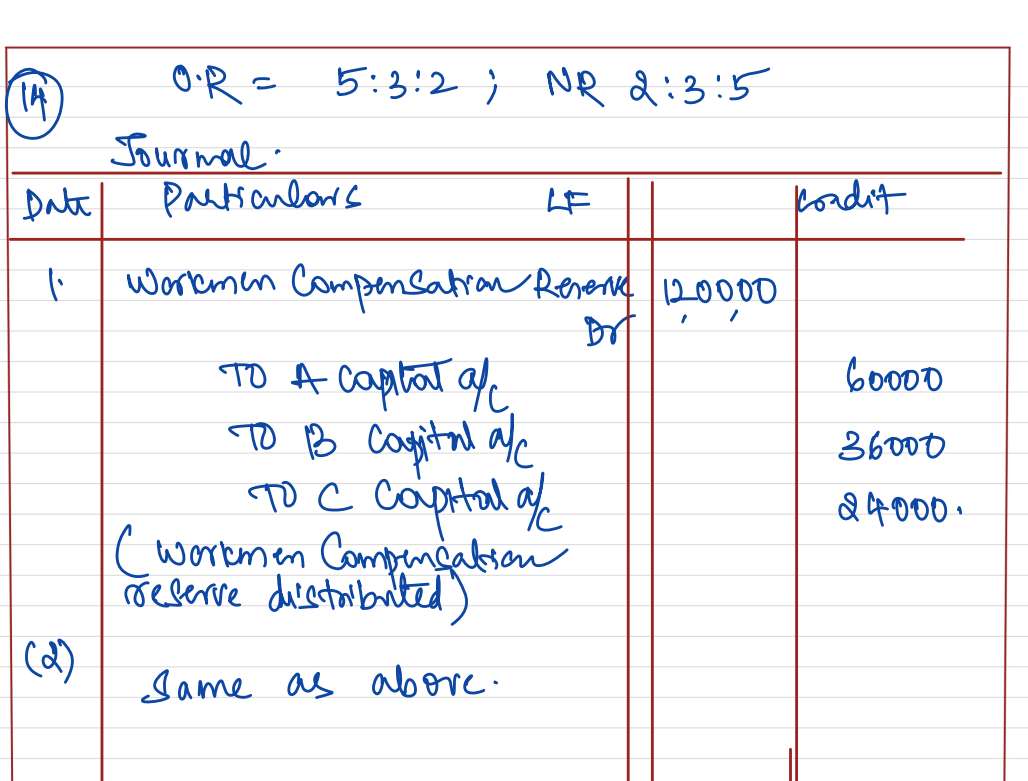 14 O.R = 5:3:2 ; NR 2:3:5
Journal.
Date Particulars LF Credit
1. Workmen Compensation Reserve 120000
Dr
To A Capital a/c 60000
To B Capital a/c 36000
To C Capital a/c 24000.
(Workmen Compensation
reserve distributed)
(2) Same as above.